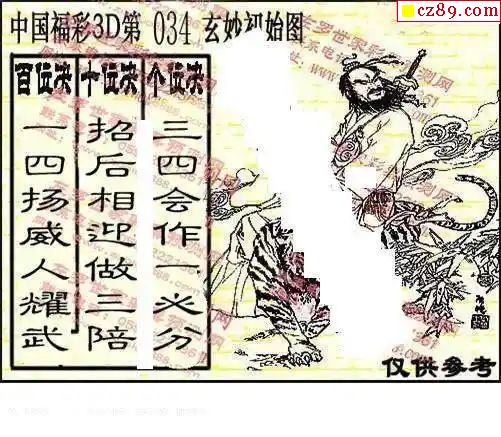 cz89.com
中国福彩3D第 034 玄妙初始图
百位决 十位决 个位决
一四扬威人耀武
招后相迎做三陪
三四会作一 分
仅供参考